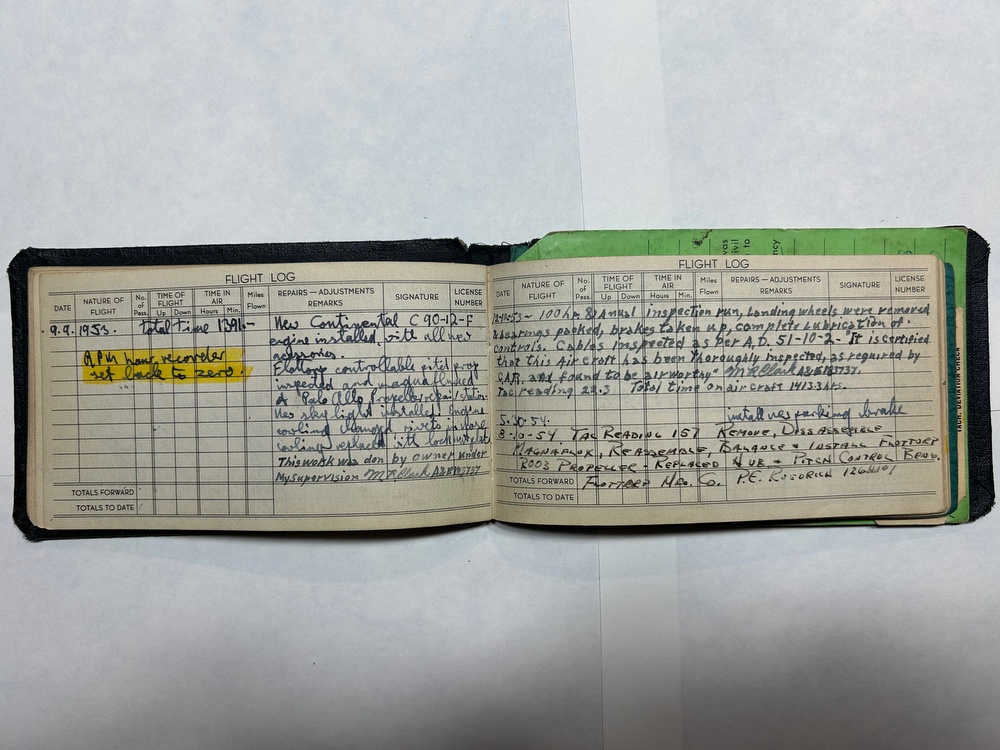 FLIGHT LOG
DATE NATURE OF FLIGHT No. of Pass. TIME OF FLIGHT Up Down TIME IN AIR Hours Min. Miles Flown REPAIRS — ADJUSTMENTS REMARKS SIGNATURE LICENSE NUMBER
9.9.1953. total time 1391.— New Continental C 90-12-F
engine installed, with all new
accessories.
R.P.M hour recorder
set back to zero.
Flottorp controllable pitch prop
inspected and magnafluxed
at Palo Alto Propeller repair station
New sky light installed. Engine
cowling changed, rivets in nose
cowling replaced with
This work was don by owner under
My supervision M R Clark A&E
TOTALS FORWARD
TOTALS TO DATE
FLIGHT LOG
DATE NATURE OF FLIGHT No. of Pass. TIME OF FLIGHT Up Down TIME IN AIR Hours Min. Miles Flown REPAIRS — ADJUSTMENTS REMARKS SIGNATURE LICENSE NUMBER
100 hr. & Annual Inspection run, Landing wheels were removed
& bearings packed, brakes taken up, complete lubrication of
controls. Cables Inspected as per A.D. 51-10-2. "It is certified
that this Aircraft has been thoroughly inspected, as required by
C.A.R. and found to be airworthy" M R Clark A&E
Tac reading 22.3 Total time on aircraft 1413.3 hrs.
install new parking brake
5-30-54.
8-0-54 TAC READING 157 REMOVE, DISSASSEMBLE
MAGNAFLUX, REASSEMBLE, BALANCE & INSTALL FLOTTORP
PROPELLER - REPLACED HUB & PITCH CONTROL BRNG.
TOTALS FORWARD FLOTTORP MFG. CO. P.E.
TOTALS TO DATE